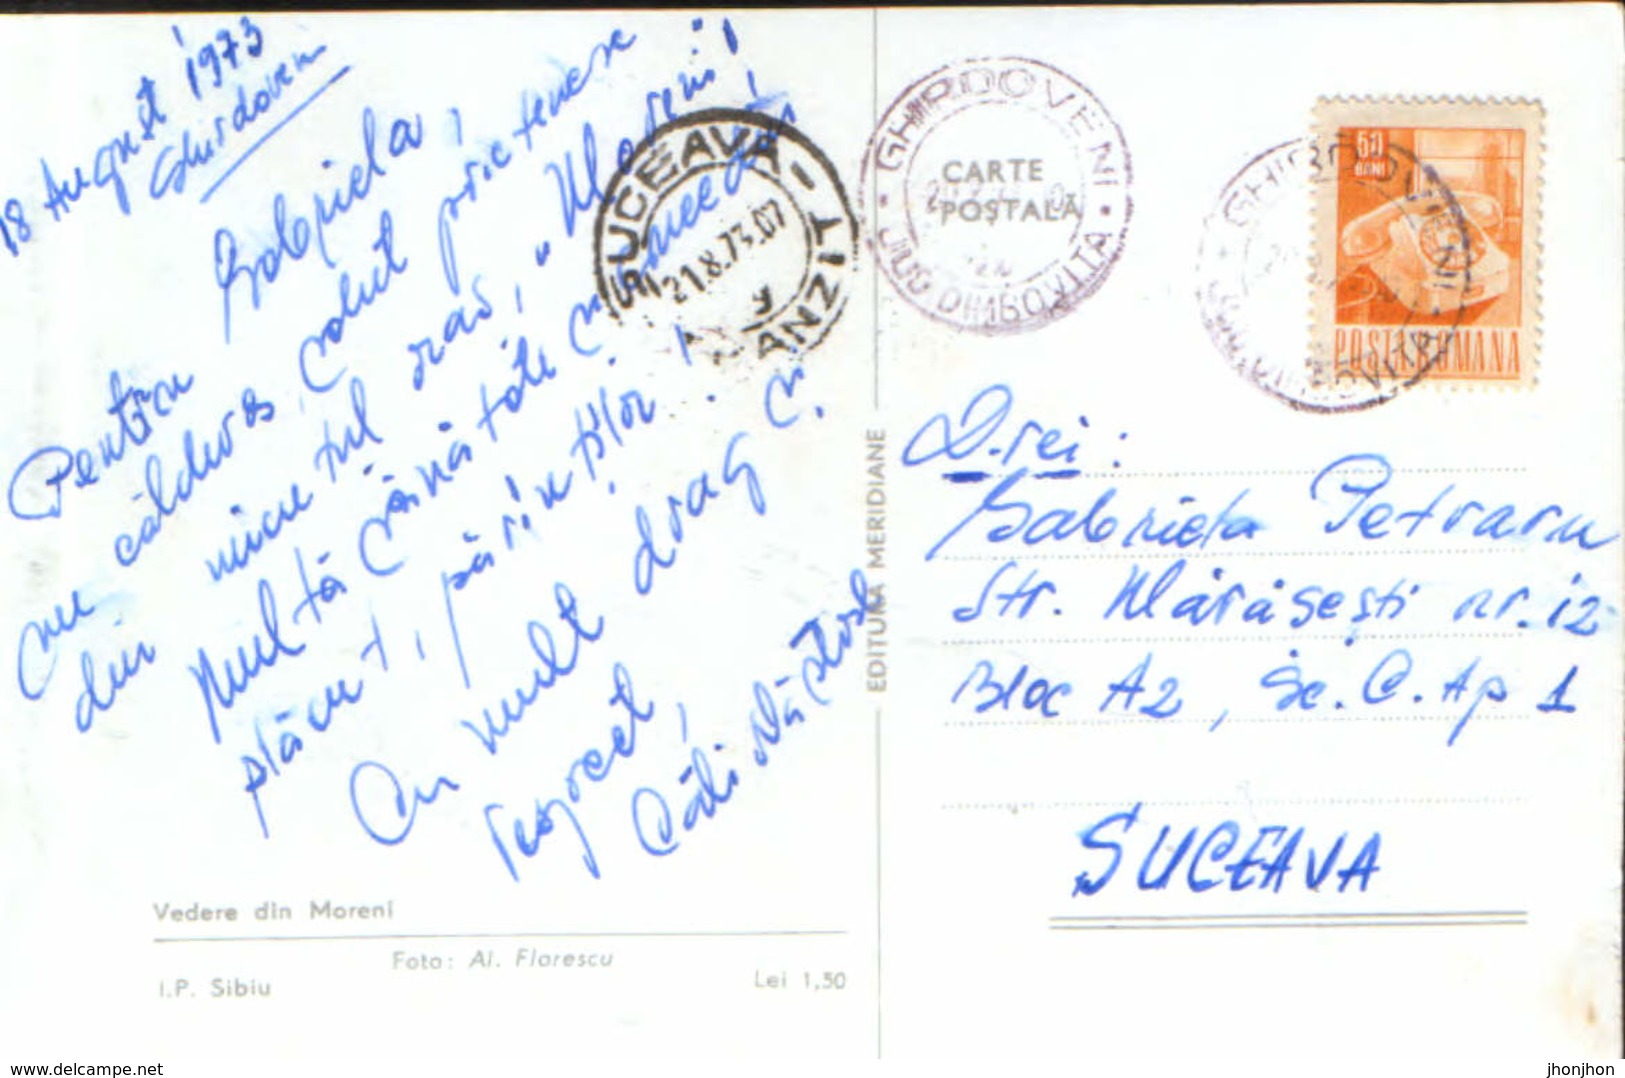 18 August 1973
Ghirdoveni
Gabriela,
Pentru
un călduros salut prietenesc
din micuțul oraș, "Moreni"!
Multă sănătate și
plăcut, părinților!
Cu mult drag și
respect,
Căti Năstase
SUCEAVA - TRANZIT
21.8.73.07
GHIRDOVENI
CARTE
POȘTALĂ
JUD. DIMBOVITA
GHIRDOVENI
JUD. DIMBOVITA
50
BANI
POSTA ROMANA
D-rei:
Gabriela Petraru
Str. Mărășești nr. 12
Bloc A2, Sc. C. Ap 1
SUCEAVA
EDITURA MERIDIANE
Vedere din Moreni
Foto: Al. Florescu
I.P. Sibiu
Lei 1,50
www.delcampe.net
jhonjhon